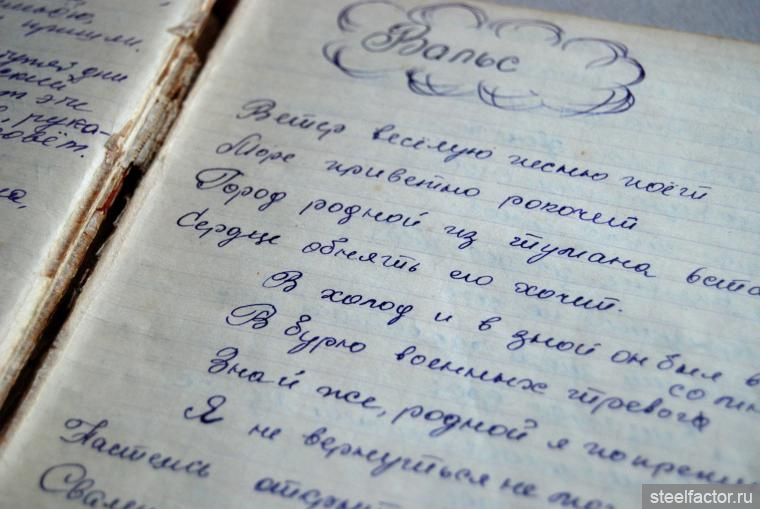 пришли.
дни
эти
рука-
Вальс
Ветер весёлую песню поёт
Море приветно рокочет
Город родной из тумана вста
Сердце обнять его хочет.
В холод и в зной он был в
со мн
В бурю военных тревога
Знай же, родной я по преж
Я не вернуться не мог
Настежь открыт
Свален
steelfactor.ru